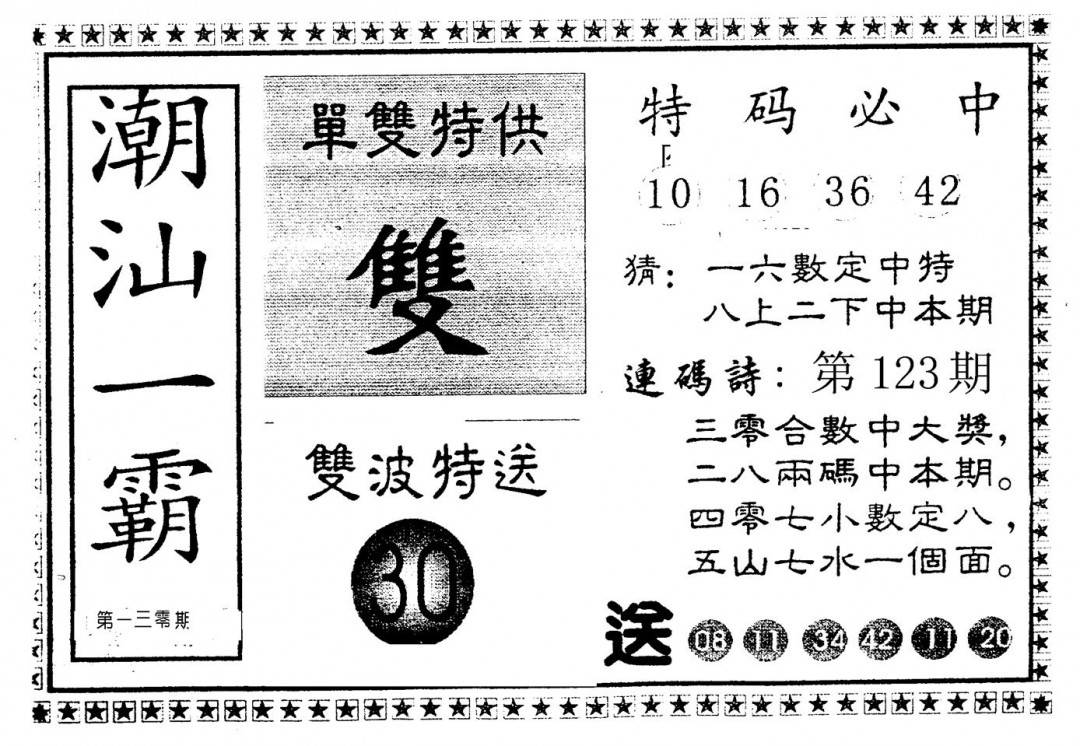 潮汕一霸
第一三零期
單雙特供
雙
雙波特送
30
特码必中
10 16 36 42
猜：一六數定中特
八上二下中本期
連碼詩：第123期
三零合數中大獎，
二八兩碼中本期。
四零七小數定八，
五山七水一個面。
送 08 11 34 42 11 20